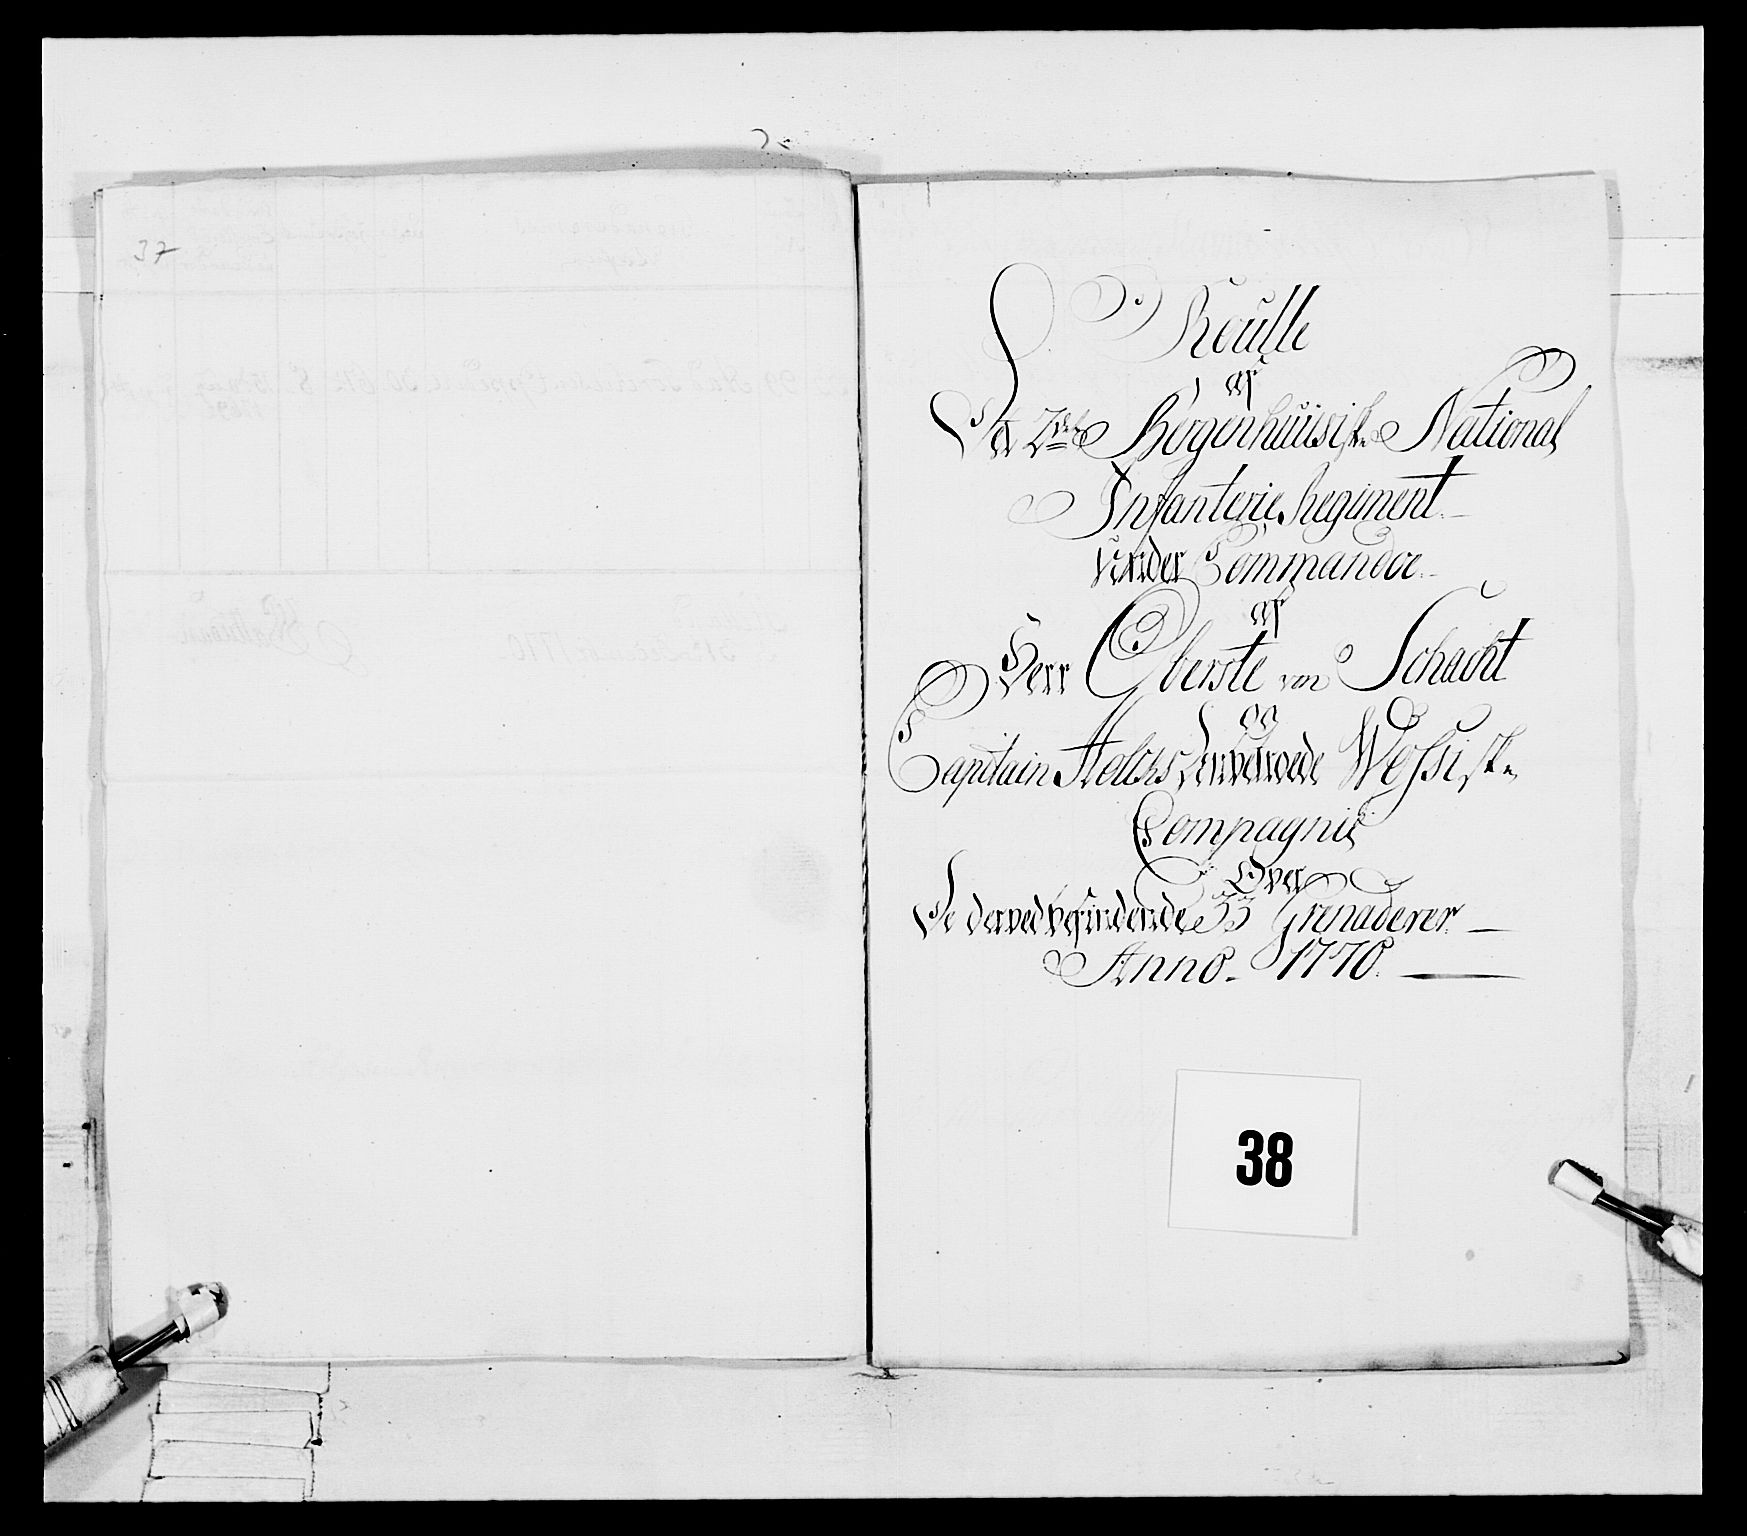 37
Roulle
af
Det 2det Bergenhuusiske National
Infanterie Regiment
Under Commandoe
af
Herr Oberste von Schacht
og
Capitain underhavende Wessiske
Compagnie
Over
De derved befindende 33 Grenaderer
Anno 1770.
38